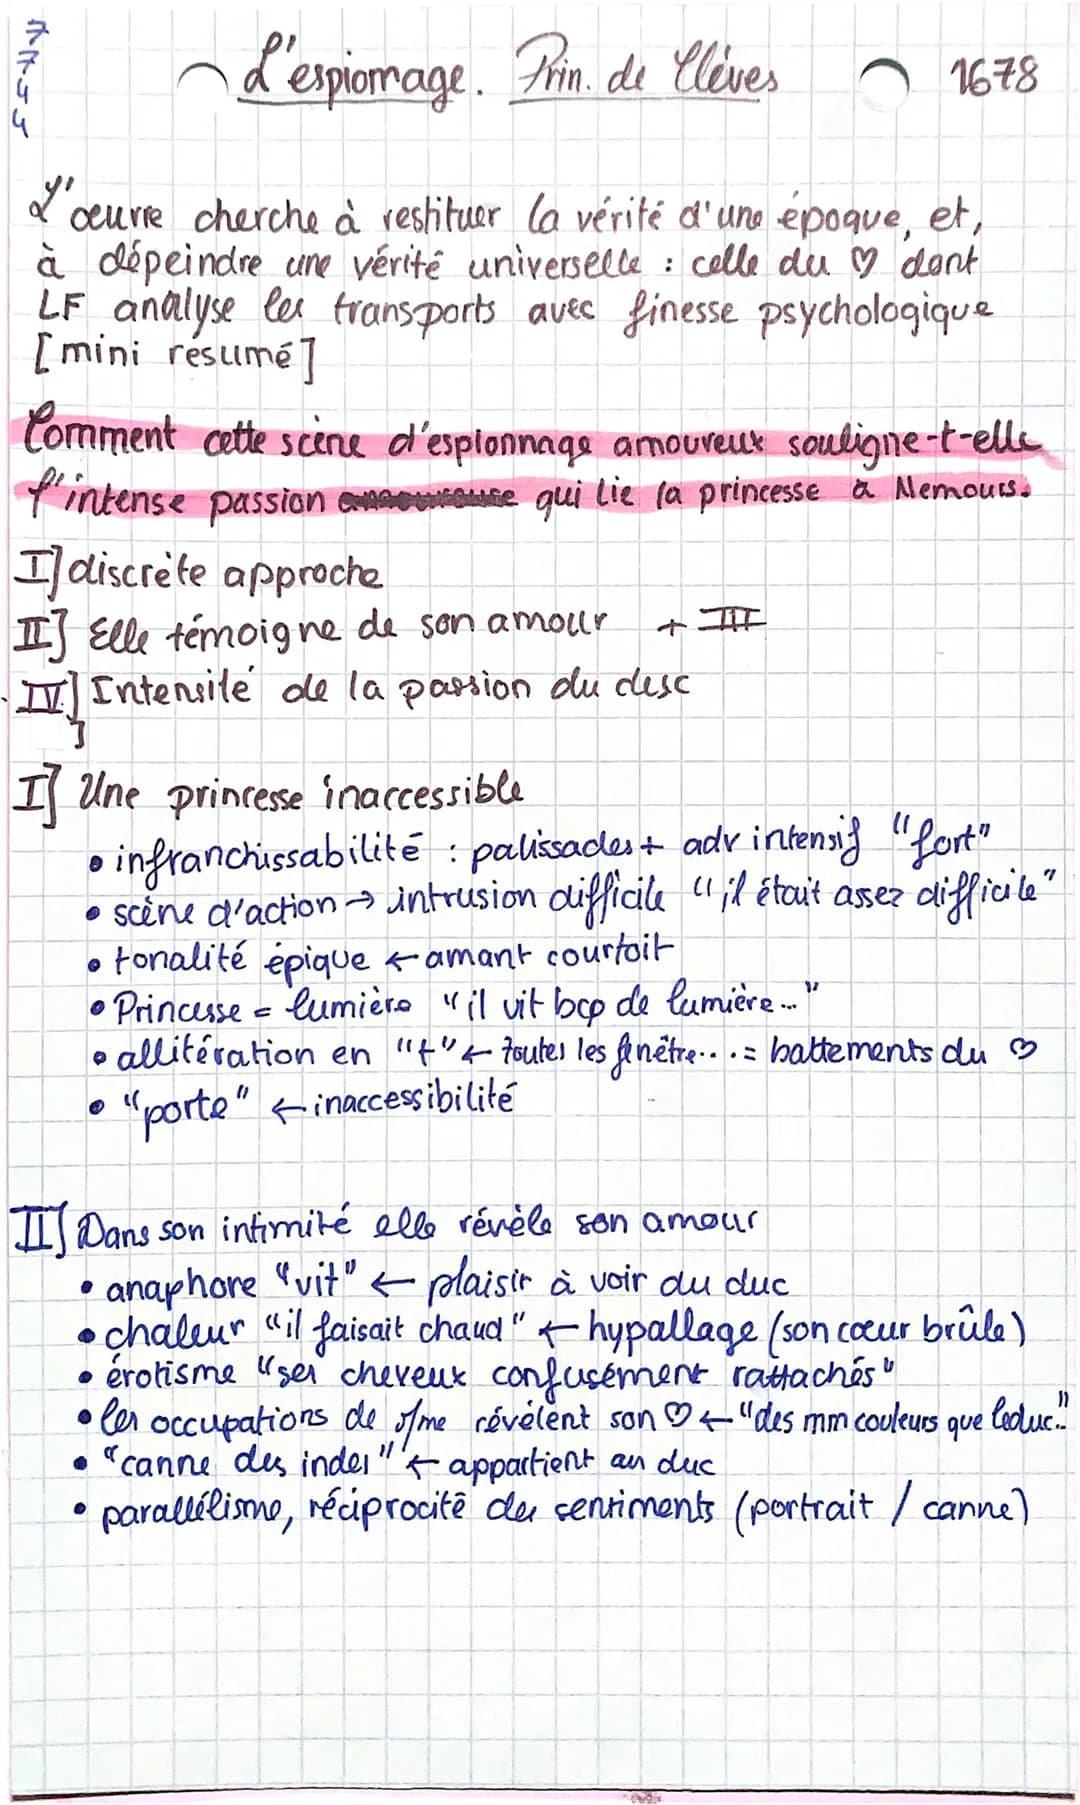 7744
L'espionnage. Prin. de Clèves 1678
L'œuvre cherche à restituer la vérité d'une époque, et,
à dépeindre une vérité universelle : celle du ♡ dont
LF analyse les transports avec finesse psychologique
[mini résumé]
Comment cette scène d'espionnage amoureux souligne-t-elle
l'intense passion qui lie la princesse à Nemours.
I] discrète approche
II] Elle témoigne de son amour + III
IV] Intensité de la passion du desc
I] Une princesse inaccessible
• infranchissabilité : palissades + adv intensif "fort"
• scène d'action → intrusion difficile "il était assez difficile"
• tonalité épique ← amant courtoit
• Princesse = lumière "il vit bcp de lumière..."
• allitération en "t" ← toutes les fenêtre... = battements du ♡
• "porte" ← inaccessibilité
II] Dans son intimité elle révèle son amour
• anaphore "vit" ← plaisir à voir du duc
• chaleur "il faisait chaud" ← hypallage (son cœur brûle)
• érotisme "ses cheveux confusément rattachés"
• les occupations de Mme révèlent son ♡ ← "des mm couleurs que leduc.."
• "canne des indes" ← appartient au duc
• parallélisme, réciprocité des sentiments (portrait / canne)